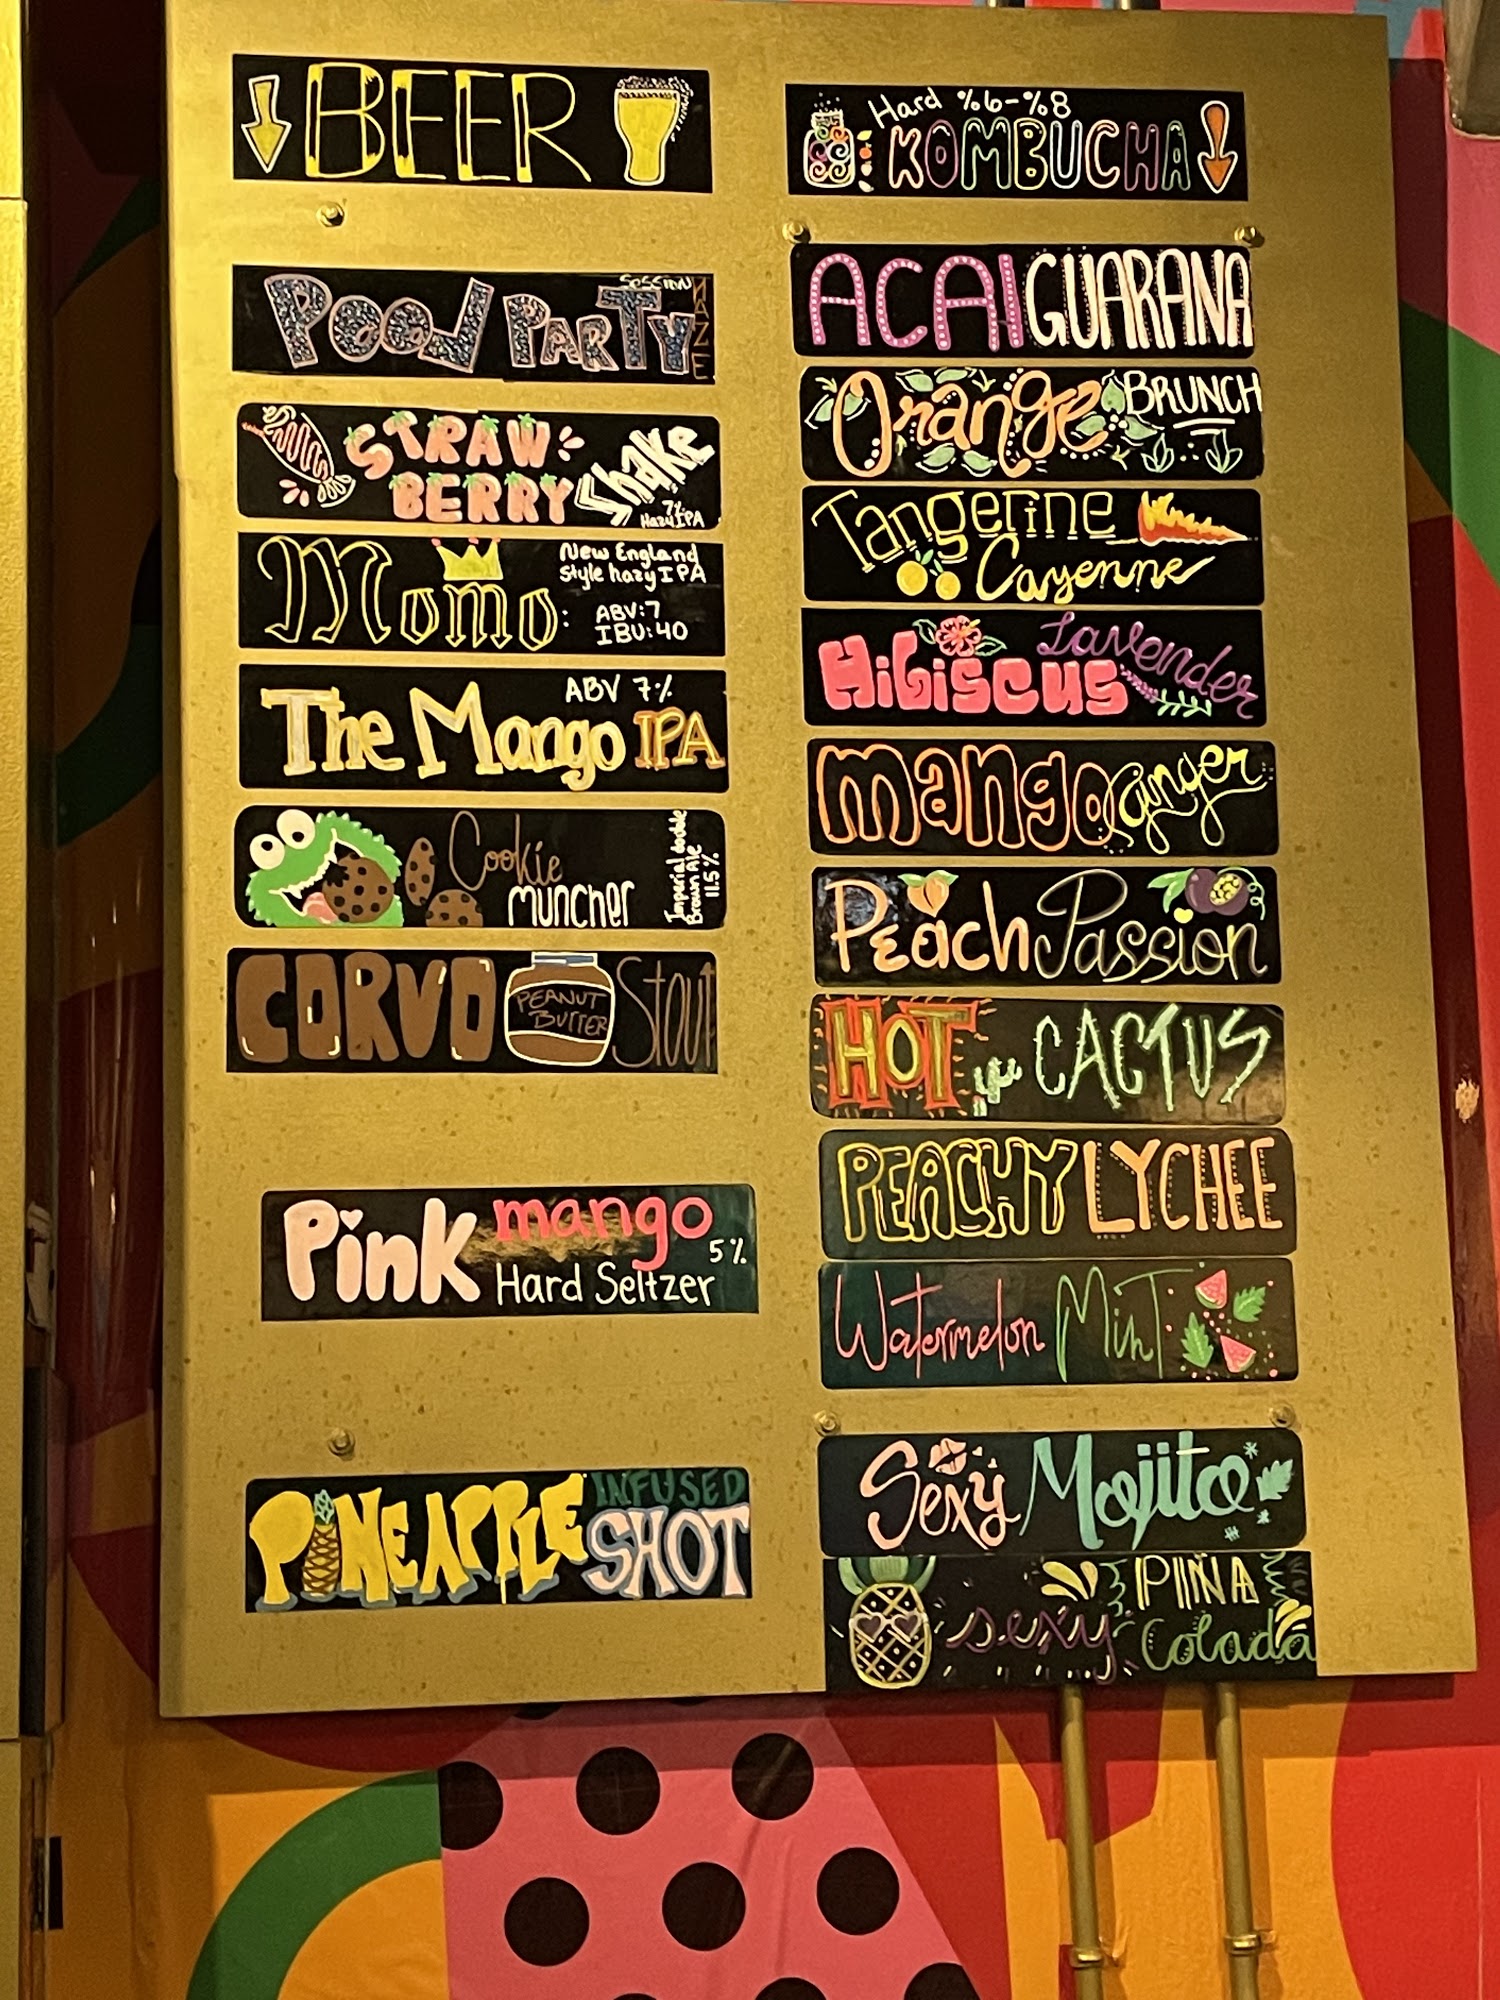 BEER
POOL PARTY
SESSION
HAZE
STRAW
BERRY
Shake
7%
Hazy IPA
Momo:
New England
style hazy IPA
ABV:7
IBU:40
The Mango IPA
ABV 7%
Cookie
muncher
Imperial double
Brown Ale
11.5%
CORVO
PEANUT
BUTTER
Stout
Pink mango
5%
Hard Seltzer
PINEAPPLE
INFUSED
SHOT
Hard %6-%8
KOMBUCHA
ACAI GUARANA
Orange BRUNCH
Tangerine
Cayenne
Hibiscus Lavender
mango ginger
Peach Passion
HOT CACTUS
PEACHY LYCHEE
Watermelon MinT
Sexy Mojito
sexy PINA
Colada